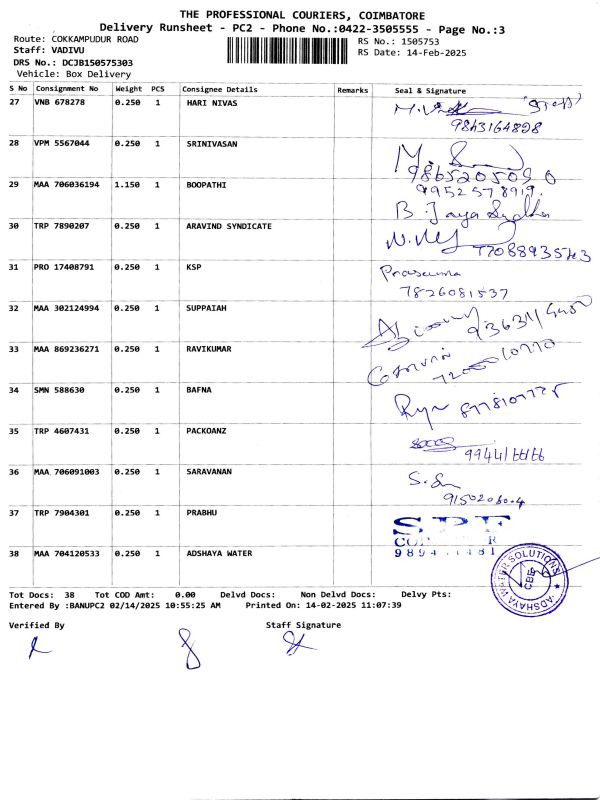 THE PROFESSIONAL COURIERS, COIMBATORE
Delivery Runsheet - PC2 - Phone No.:0422-3505555 - Page No.:3
Route: COKKAMPUDUR ROAD
RS No.: 1505753
Staff: VADIVU
RS Date: 14-Feb-2025
DRS No.: DCJB150575303
Vehicle: Box Delivery
S No Consignment No Weight PCS Consignee Details Remarks Seal & Signature
27 VNB 678278 0.250 1 HARI NIVAS
9843164898
28 VPM 5567044 0.250 1 SRINIVASAN
9865205090
29 MAA 706036194 1.150 1 BOOPATHI
9952578919.
B. Jaya Sudha
30 TRP 7890207 0.250 1 ARAVIND SYNDICATE
7708893543
31 PRO 17408791 0.250 1 KSP
Prasanna
7826081537
32 MAA 302124994 0.250 1 SUPPAIAH
33 MAA 869236271 0.250 1 RAVIKUMAR
34 SMN 588630 0.250 1 BAFNA
35 TRP 4607431 0.250 1 PACKOANZ
36 MAA 706091003 0.250 1 SARAVANAN
37 TRP 7904301 0.250 1 PRABHU
SPF
38 MAA 704120533 0.250 1 ADSHAYA WATER
ADSHAYA WATER SOLUTIONS
CBE
Tot Docs: 38 Tot COD Amt: 0.00 Delvd Docs: Non Delvd Docs: Delvy Pts:
Entered By :BANUPC2 02/14/2025 10:55:25 AM Printed On: 14-02-2025 11:07:39
Verified By Staff Signature